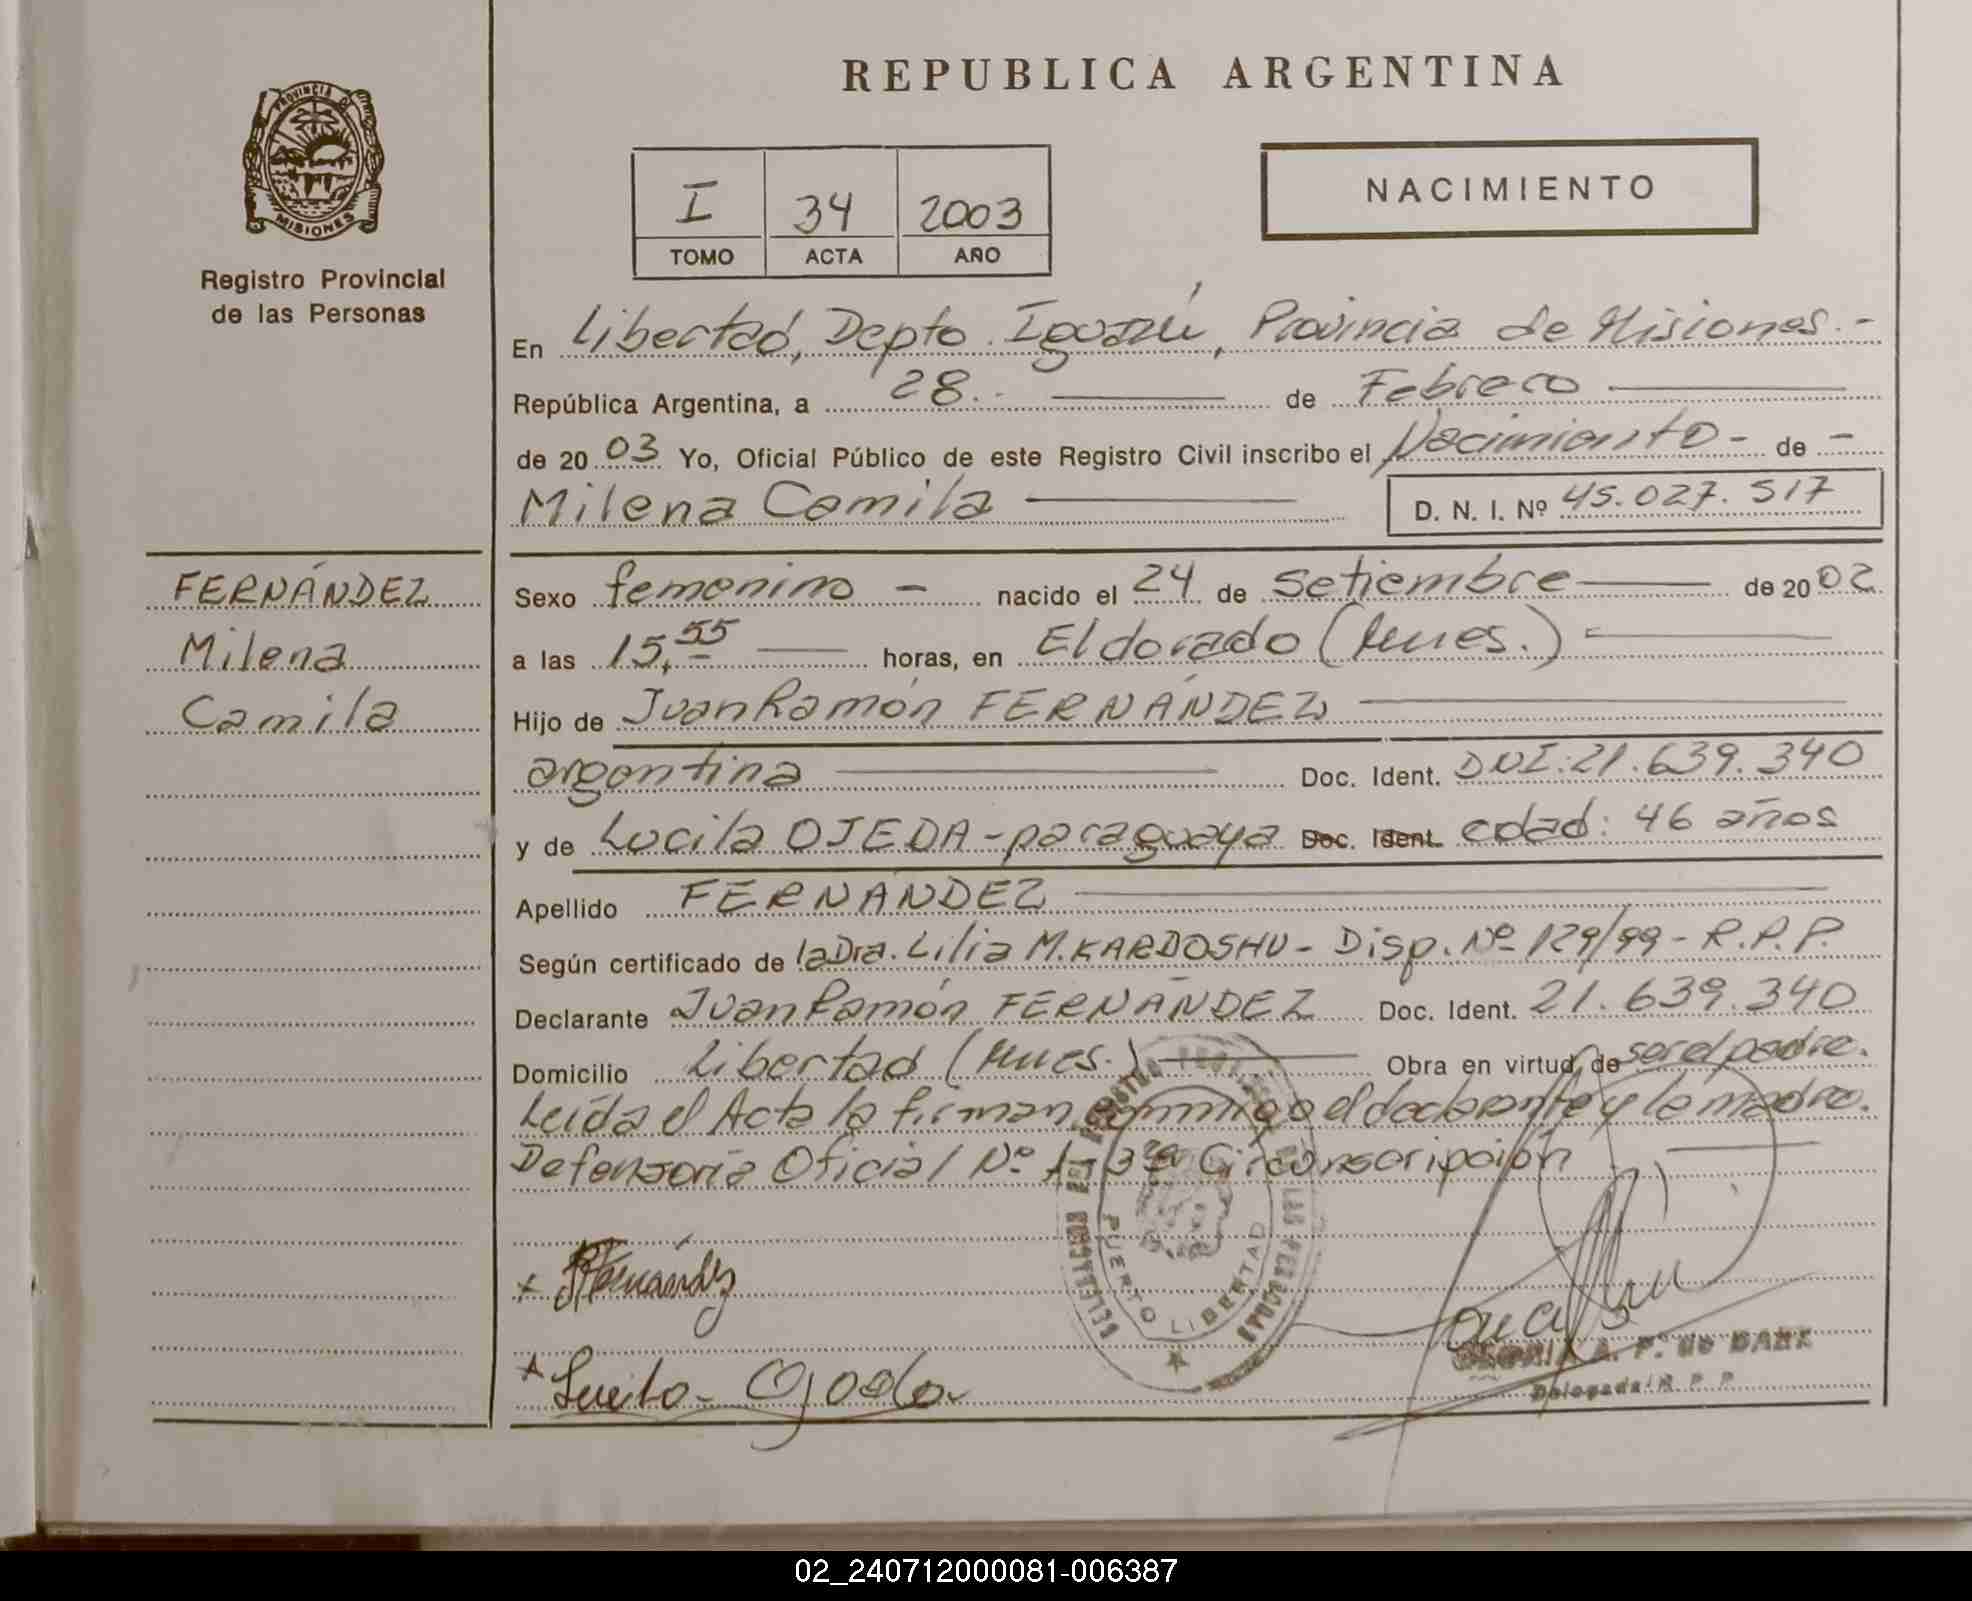 REPUBLICA ARGENTINA
PROVINCIA D
MISIONES
Registro Provincial
de las Personas
I 34 2003
TOMO ACTA AÑO
NACIMIENTO
En Libertad, Depto. Iguazú, Provincia de Misiones.-
República Argentina, a 28.- de Febrero
de 20 03 Yo, Oficial Público de este Registro Civil inscribo el Nacimiento - de -
Milena Camila D. N. I. Nº 45.027.517
FERNÁNDEZ
Milena
Camila
Sexo femenino - nacido el 24 de setiembre de 20 02
a las 15,55 horas, en Eldorado (Mnes.)
Hijo de Juan Ramón FERNÁNDEZ
argentina Doc. Ident. DNI:21.639.340
y de Lucila OJEDA - paraguaya Doc. Ident. edad: 46 años
Apellido FERNÁNDEZ
Según certificado de la Dra. Lilia M. KARDOSHU - Disp. Nº 129/99 - R.P.P.
Declarante Juan Ramón FERNÁNDEZ Doc. Ident. 21.639.340
Domicilio Libertad (Mnes.) Obra en virtud de ser el padre.
Leída el Acta la firman conmigo el declarante y la madre.
Defensoría Oficial Nº 1 - 3ra Circunscripción
x Fernández
x Ojeda
PUERTO LIBERTAD
A. P. de
Delegada R. P. P.
02_240712000081-006387